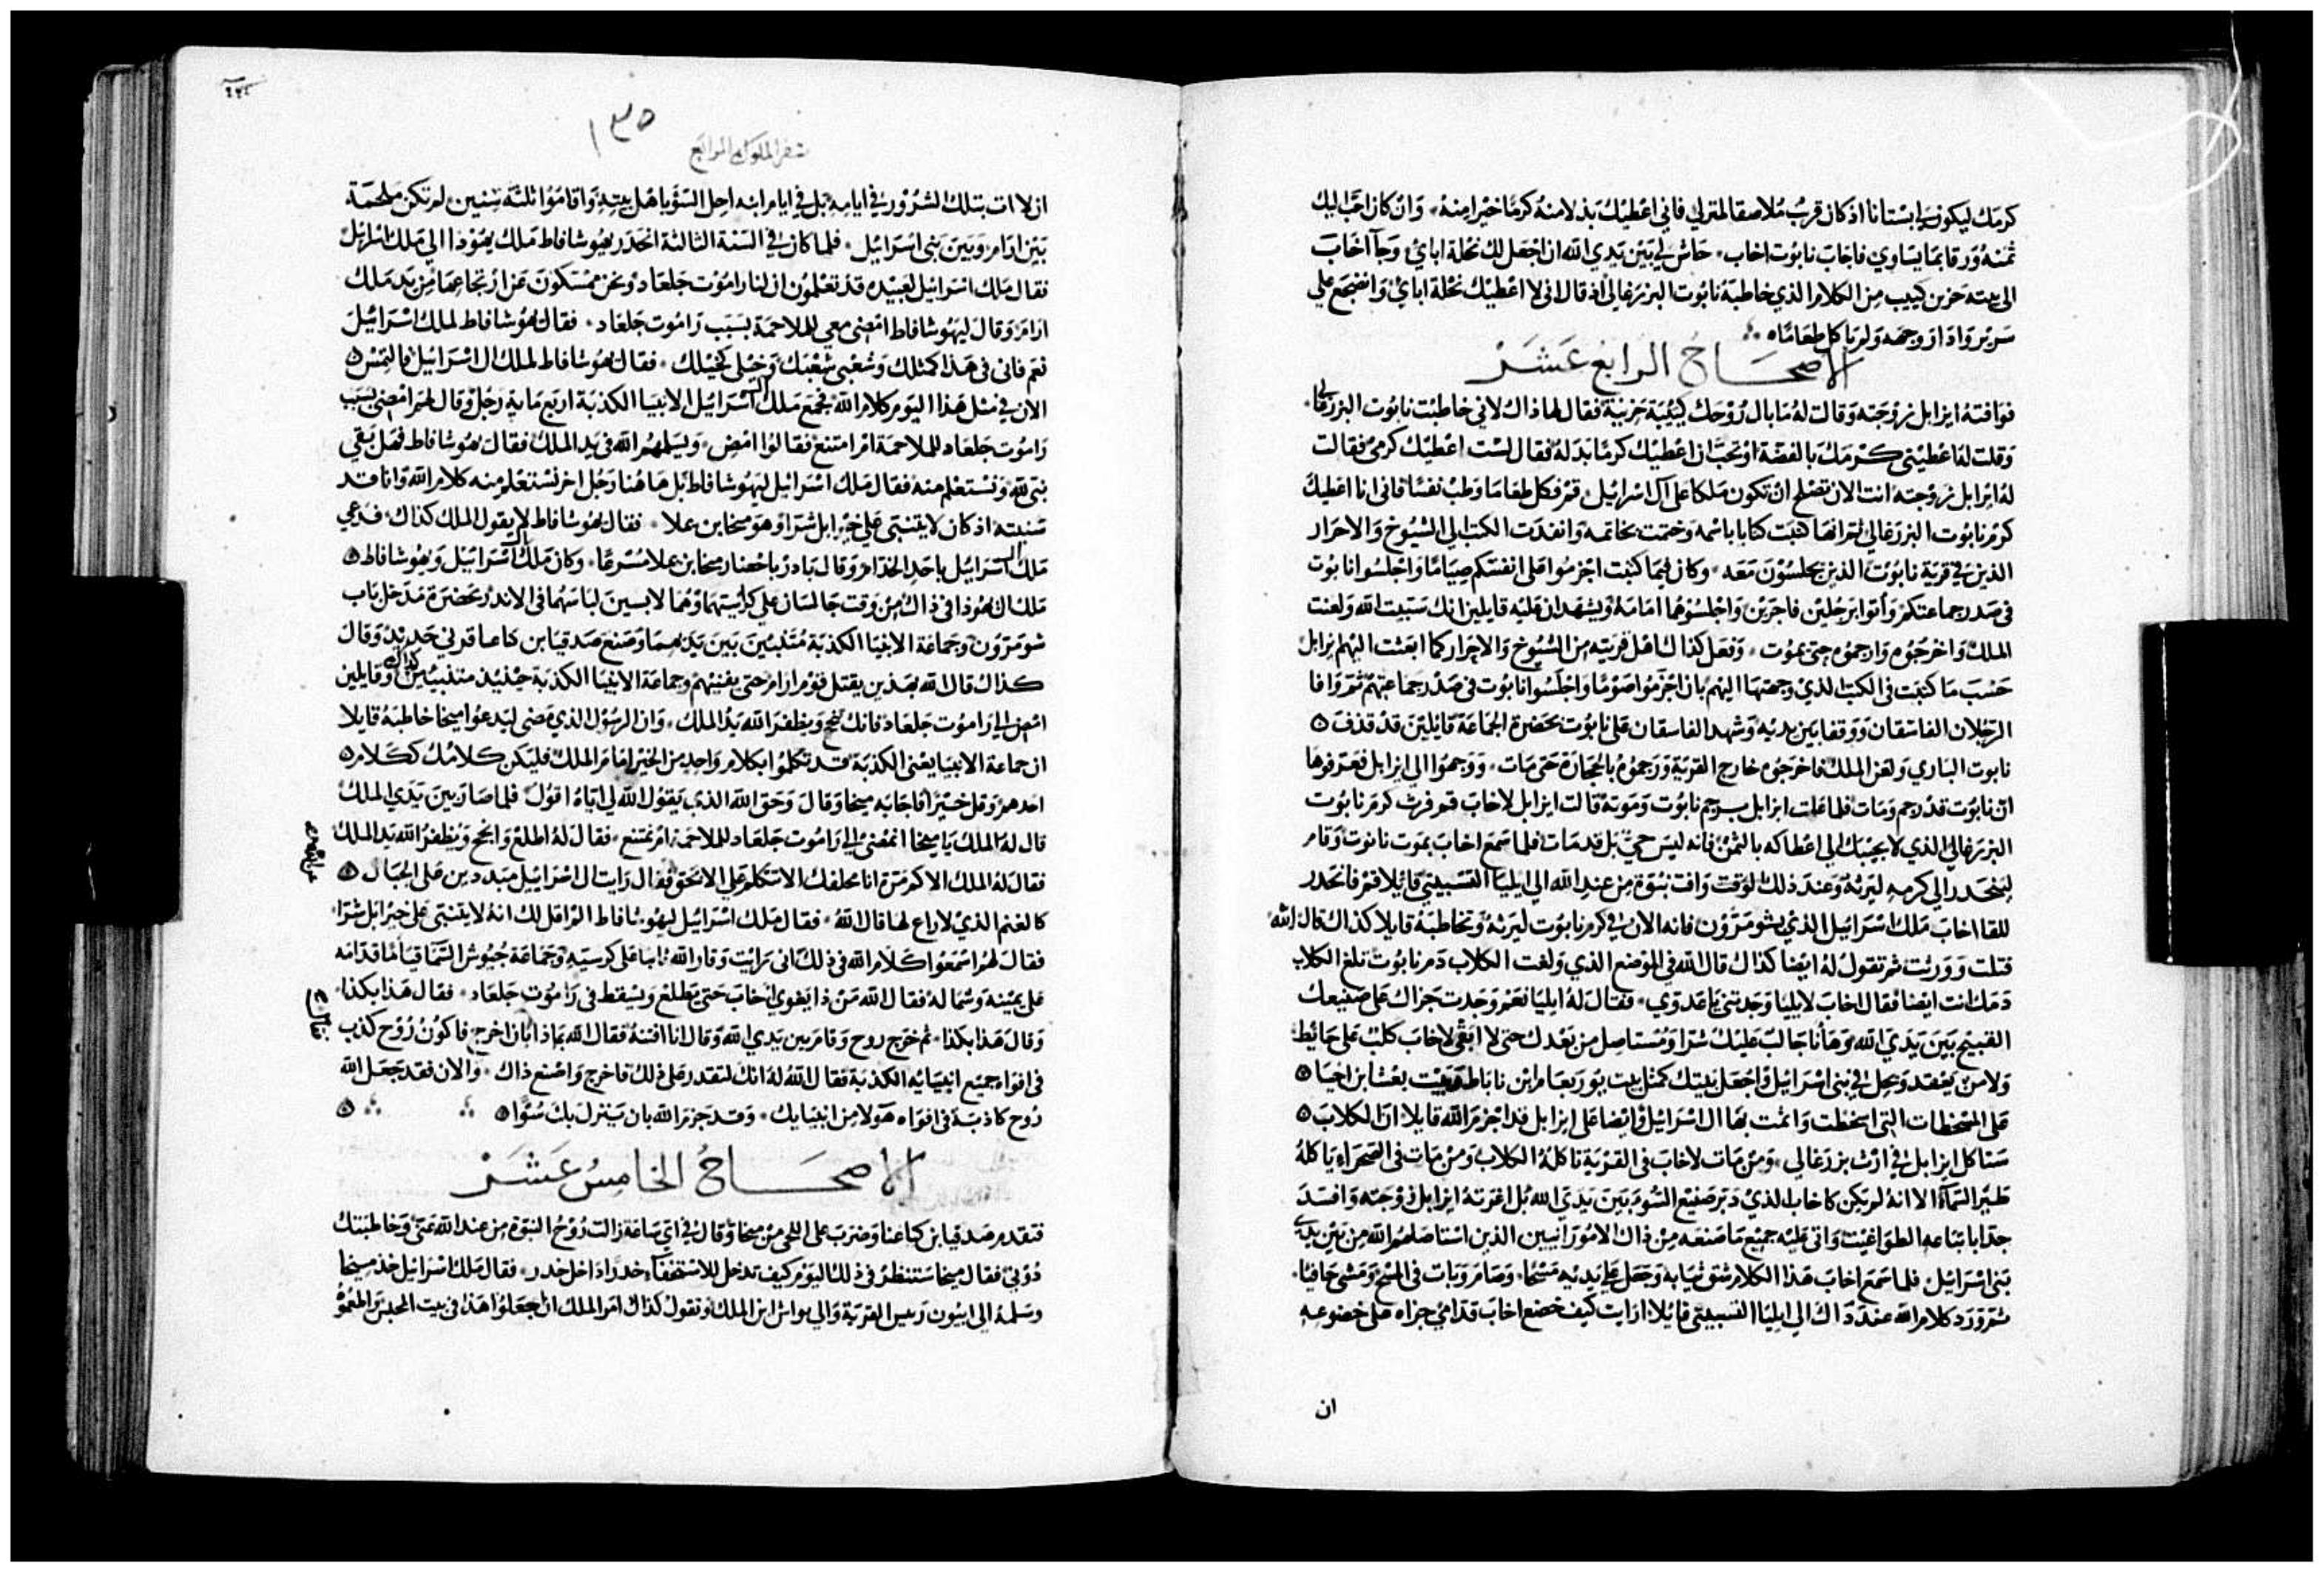 كرمك ليكون لي بستانا اذ كان قرب ملاصقا لمنزلي فاني اعطيك بدلا منه كرما خيرا منه وان كان احب اليك
ثمنه ورقا بما يساوي فاجاب نابوت اخاب حاش لي بين يدي الله ان اجعل لك نحلة ابائي وجآ اخاب
الى بيته حزين كييب من الكلام الذي خاطبه نابوت اليزرغالي اذ قال اني لا اعطيك نحلة ابائي وانضجع علي
سرير وادار وجهه ولم ياكل طعاما
الاصحاح الرابع عشر
فوافته ايزابل زوجته وقالت له ما بال روحك كييبة حزينة فقال لها ذاك لاني خاطبت نابوت اليزرغالي
وقلت له اعطيني كرمك بالفضة او تحب ان اعطيك كرما بدله فقال لست اعطيك كرمي فقالت
له ايزابل زوجته انت الان تصلح ان تكون ملكا على ال اسرائيل قم فكل طعاما وطب نفسا فاني انا اعطيك
كرم نابوت اليزرغالي ثم انها كتبت كتابا باسمه وختمت بخاتمه وانفذت الكتب الي الشيوخ والاحرار
الذين في قرية نابوت الذين يجلسون معه وكان فيما كتبت اجزموا على انفسكم صياما واجلسوا نابوت
في صدر جماعتكم وأتوا برجلين فاجرين واجلسوهما امامه ويشهدان عليه قايلين انك سبيت الله ولعنت
الملك واخرجوه وارجموه حتى يموت وفعل كذاك اهل قريته من الشيوخ والاحرار كما ابعثت اليهم يزابل
حسب ما كتبت في الكتب الذي وجهتها اليهم بان اجزموا صوما واجلسوا نابوت في صدر جماعتهم ثم وافا
الرجلان الفاسقان ووقفا بين يديه وشهد الفاسقان على نابوت بحضرة الجماعة قايلين قد قذف
نابوت الباري ولعن الملك فاخرجوه خارج القرية ورجموه بالحجارة حتى مات ووجهوا الى ايزابل فعرفوها
ان نابوت قد رجم ومات فلما علمت ايزابل برجم نابوت وموته قالت ايزابل لاخاب قم فرث كرم نابوت
اليزرغالي الذي لا يجيبك الي اعطاكه بالثمن فانه ليس حي بل قد مات فلما سمع اخاب بموت نابوت وقام
لينحدر الى كرمه ليرثه وعند ذلك الوقت وافت نبوة من عند الله الي ايليا التسبيتي قايلا قم فانحدر
للقا اخاب ملك اسرائيل الذي بشومرون فانه الان في كرم نابوت ليرثه وتخاطبه قايلا كذاك قال الله
قتلت وورثت ثم تقول له ايضا كذاك قال الله في الموضع الذي ولغت الكلاب دم نابوت تلغ الكلاب
دمك انت ايضا فقال اخاب لايليا وجدتني يا عدوي فقال له ايليا نعم وجدت جزاك على صنيعك
القبيح بين يدي الله وهأنا جالب عليك شرا ومستاصل من بعدك حتى لا ابقى لاخاب كلب على حائط
ولا من يعقد ويحل في بني اسرائيل واجعل بيتك كمثل بيت يوربعام ابن ناباط وبيت بعشا بن احيا
على المسخطات التي اسخطت واثمت بها ال اسرائيل وايضا على ايزابل قد اجزم الله قايلا ان الكلاب
ستاكل ايزابل في ارث يزرغالي ومن مات لاخاب في القرية تاكله الكلاب ومن مات في الصحراء ياكله
طير السمآء الا انه لم يكن كاخاب الذي دبر صنيع السوء بين يدي الله بل اغرته ايزابل زوجته وافسد
جدا باتباعه الطواغيت واتى عليه جميع ما صنعه من ذاك الامورانيين الذين استاصلهم الله من بين يدي
بني اسرائيل فلما سمع اخاب هذا الكلام شق ثيابه وجعل علي يديه مسحا وصام وبات في المسح ومشى حافيا
ثم ورد كلام الله عند ذاك الي ايليا التسبيتي قايلا ارايت كيف خضع اخاب قدامي جزاه على خضوعه
ان
١٣٥
سفر الملوك الرابع
ان لا ات بتلك الشرور في ايامه بل في ايام ابنه احل السؤ باهل بيته واقاموا ثلثة سنين لم تكن ملحمة
بين ارام وبين بني اسرائيل فلما كان في السنة الثالثة انحدر يهوشافاط ملك يهوذا الي ملك اسرائيل
فقال ملك اسرائيل لعبيده قد تعلمون ان لنا راموت جلعاد ونحن ممسكون عن ارتجاعها من يد ملك
ارام وقال ليهوشافاط امضي معي للملاحمة بسبب راموت جلعاد فقال يهوشافاط لملك اسرائيل
نعم فاني في هذا كمثلك وشعبي شعبك وخيلي كخيلك فقال يهوشافاط لملك ال اسرائيل فالتمس
الان في مثل هذا اليوم كلام الله فجمع ملك ال اسرائيل الانبيا الكذبة اربع ماية رجل وقال لهم امضي بسبب
راموت جلعاد للملاحمة ام امتنع فقالوا امض وليسلمهم الله في يد الملك فقال يهوشافاط فهل بقي
نبي لله ونستعلم منه فقال ملك اسرائيل ليهوشافاط بل هاهنا رجل اخر نستعلم منه كلام الله وانا قد
شنيته اذ كان لا يتنبى علي خير ابل شرا وهو ميخا بن علا فقال يهوشافاط لا يقول الملك كذاك فدعي
ملك ال اسرائيل باحد الخدام وقال بادر باحضار ميخا بن علا مسرعا وكان ملك ال اسرائيل ويهوشافاط
ملك ال يهوذا في ذاك من وقت جالسان علي كراسيهما وهما لابسين لباسهما في الاندر بحضرة مدخل باب
شومرون وجماعة الانبيا الكذبة متنبيين بين يديهما وصنع صدقيا بن كناعنا قرني حديد وقال
كذاك قال الله بهذين يقتل قوم ارام حتى يفنيهم وجماعة الانبيا الكذبة حينيذ متنبيين كذاك وقايلين
امض الي راموت جلعاد فانك تنجح ويظفر الله يد الملك وان الرسول الذي مضى ليدعوا ميخا خاطبه قايلا
ان جماعة الانبيا يعني الكذبة قد تكلموا بكلام واحد من الخير امام الملك فليكن كلامك ككلام
احدهم وقل خيرا فاجابه ميخا وقال وحق الله الذي يقول الله لي اياه اقول فلما صار بين يدي الملك
قال له الملك يا ميخا انمضي الي راموت جلعاد للملاحمة ام نمتنع فقال له اطلع وانجح ويظفر الله يد الملك
فقال له الملك الا كم مرة انا محلفك الا تتكلم علي الا بحق فقال رايت ال اسرائيل مبددين على الجبال
كالغنم الذي لا راع لها قال الله فقال ملك اسرائيل ليهوشافاط الم اقل لك انه لا يتنبى على خير ابل شرا
فقال لهم اسمعوا كلام الله في ذلك اني رايت وقار الله ثابتا على كرسيه وجماعة جيوش السمآ قيأما قدامه
على يمينه وشماله فقال الله من ذا يغوي اخاب حتى يطلع ويسقط في راموت جلعاد فقال هذا بكذا
وقال هذا بكذا ثم خرج روح وقام بين يدي الله وقال انا افتنه فقال الله بماذا بان اخرج فاكون روح كذب
في افواه جميع انبيائه الكذبة فقال الله له انك لتقدر على ذلك فاخرج واصنع ذاك والان فقد جعل الله
روح كاذبة في افواه هولا من انبيايك وقد جزم الله بان ينزل بك سوا
الاصحاح الخامس عشر
فتقدم صدقيا بن كناعنا وضرب على اللحي من ميخا وقال في اي ساعة زالت روح النبوة من عند الله عني وخاطبتك
دوني فقال ميخا ستنظر في ذلك اليوم كيف تدخل للاستخفآء خدرا داخل خدر فقال ملك اسرائيل خذ ميخا
وسلمه الى امون رييس القرية والي يواش ابن الملك وتقول كذاك امر الملك ان اجعلوا هذا في بيت الحبس واطعموه